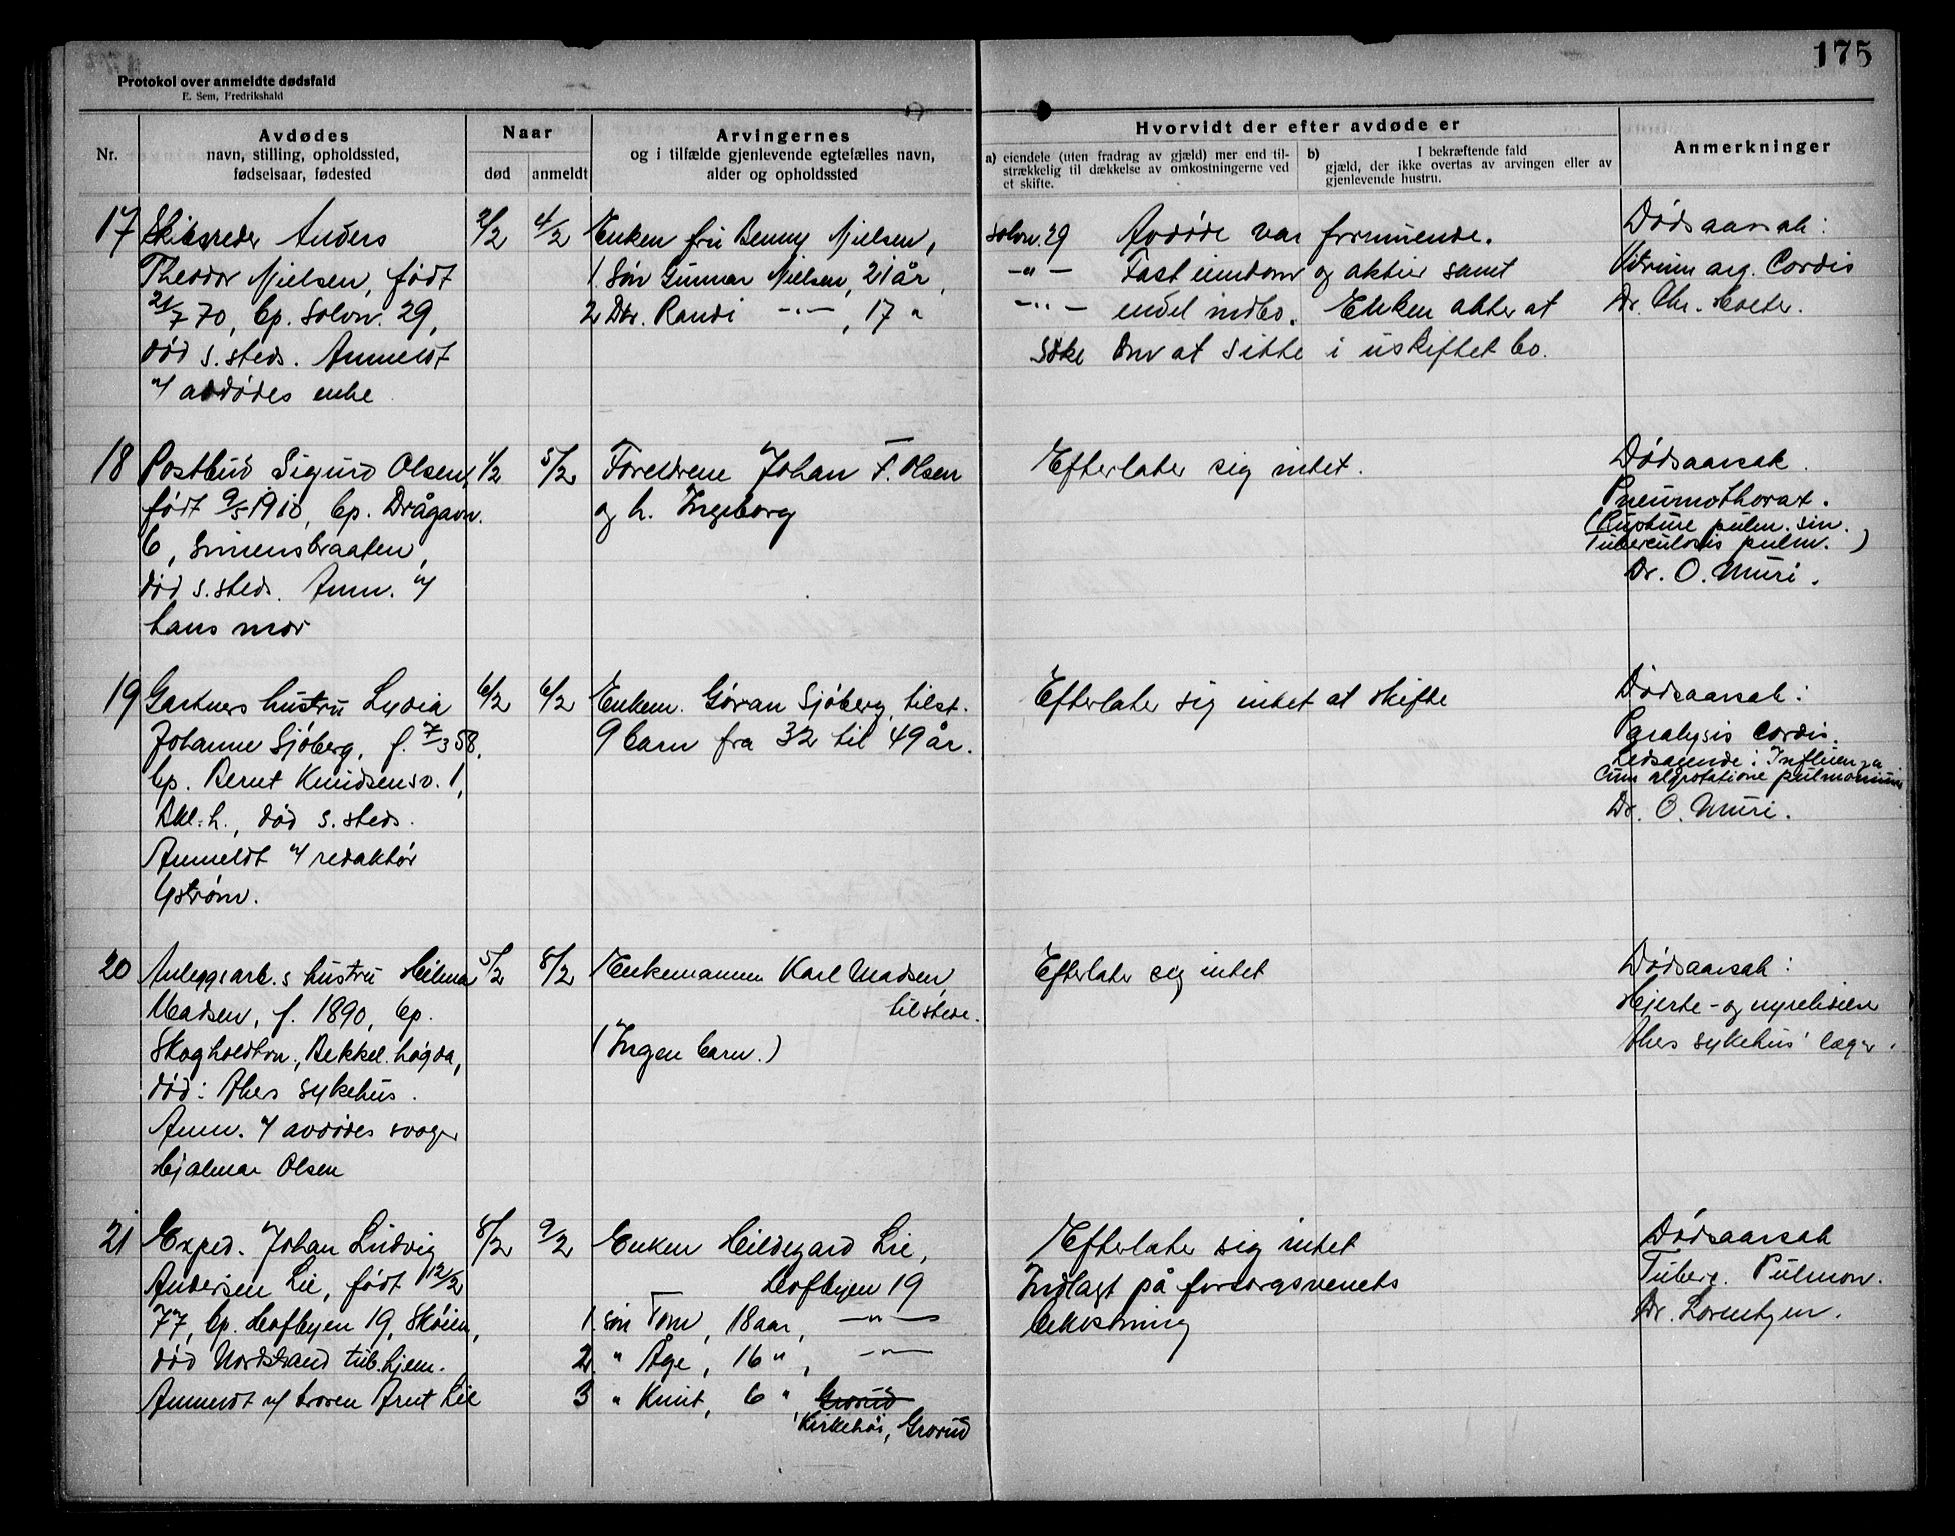 175
Protokol over anmeldte dødsfald
E. Sem, Fredrikshald
Nr.
Avdødes
navn, stilling, opholdssted,
fødselsaar, fødested
Naar
død
anmeldt
Arvingernes
og i tilfælde gjenlevende egtefælles navn,
alder og opholdssted
Hvorvidt der efter avdøde er
a) eiendele (uten fradrag av gjæld) mer end til-
strækkelig til dækkelse av omkostningerne ved
et skifte.
b) I bekræftende fald
gjæld, der ikke overtas av arvingen eller av
gjenlevende hustru.
Anmerkninger
17
Skibsreder Anders
Theodor Nielsen, født
21/7 70, bp. Solvn. 29,
død s. steds. Anmeldt
a/ avdødes enke
2/2
4/2
Enken fru Benny Nielsen,
1 Søn Gunnar Nielsen, 21 år,
2 Dtr. Randi -"-, 17 "
Solvn. 29
-"-
-"-
Avdøde var formuende.
Fast eiendom og aktier samt
endel indbo. Enken akter at
søke om at sitte i uskiftet bo.
Dødsaarsak:
Vitium org. Cordis
Dr. Chr.
18
Postbud Sigurd Olsen,
født 9/5 1910, bp. Drågavn.
6, Simensbraaten,
død s. steds. Anm. a/
hans mor
1/2
5/2
Foreldrene Johan F. Olsen
og h. Ingeborg
Efterlater sig intet.
Dødsaarsak.
Pneumothorax.
(Rupture pulm. sin.
Tuberculosis pulm.)
Dr. O. Muri.
19
Gartners hustru Lydia
Johanne Sjøberg, f. 7/3 58,
bp. Bernt Knudsensv. 1,
Bkl.h., død s. steds.
Anmeldt a/ redaktør
Ystrøm.
6/2
6/2
Enkem. Gøran Sjøberg, tilst.
9 barn fra 32 til 49 år.
Efterlater sig intet at skifte
Dødsaarsak:
Paralysis cordis.
Ledsagende: Influenza
cum pulmonium
Dr. O. Muri.
20
Anleggsarb.s hustru Hilma
Madsen, f. 1890, bp.
Skogholdtvn., Bekkel.høgda,
død: Akers sykehus.
Anm. a/ avdødes svoger
Hjalmar Olsen
5/2
8/2
Enkemannen Karl Madsen,
tilstede.
(Ingen barn.)
Efterlater sig intet
Dødsaarsak:
Hjerte- og nyrelidelse
Akers sykehus' læger.
21
Exped. Johan Ludvig
Andersen Lie, født 12/2
77, bp. Hofbyen 19, Skøien,
død Nordstrand tub.hjem.
Anmeldt a/ broren Arnt Lie
8/2
9/2
Enken Hildegard Lie,
Hofbyen 19
1. søn Tom, 18 aar, -"-
2. " Åge, 16 ", -"-
3 " Knut, 6 " Grorud
Kirkehøi, Grorud
Efterlater sig intet
Indlagt på forsorgsvenets
bekostning
Dødsaarsak
Tuberc. Pulmon.
Dr. Lorentzen.